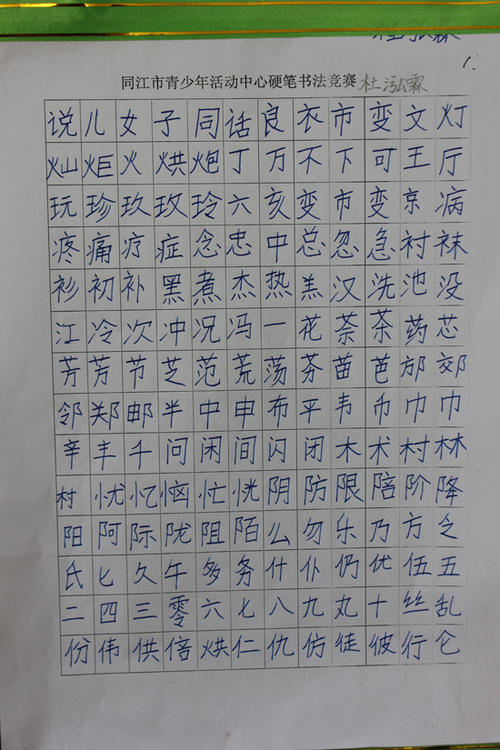 1.
同江市青少年活动中心硬笔书法竞赛 杜泓霖
说儿女子同话良衣市变文灯
灿炬火烘炮丁万不下可王厅
玩珍玖玫玲六亥变市变京病
疼痛疗症念忠中总忽急衬袜
衫初补黑煮杰热羔汉洗池没
江冷次冲况冯一花荼茶药芯
芳芳节芝范荒荡芬苗芭邡郊
邻郑邮半中申布平韦币巾巾
辛丰千问闲间闪闭木术村林
村忧忆恼忙恍阴防限陪阶降
阳阿际陇阻陌么勿乐乃方乏
氏匕久午多务什仆仍优伍五
二四三零六七八九丸十丝乱
份伟供倍烘仁仇仿徒彼行仑